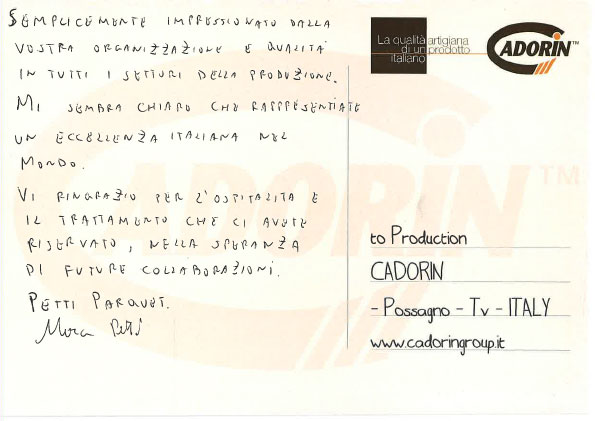 Semplicemente impressionato dalla
vostra organizzazione e qualità
in tutti i settori della produzione.
Mi sembra chiaro che rappresentiate
un eccellenza italiana nel
mondo.
Vi ringrazio per l'ospitalità e
il trattamento che ci avete
riservato, nella speranza
di future collaborazioni.
Petti Parquet.
La qualità artigiana
di un prodotto
italiano
CADORIN™
to Production
CADORIN
- Possagno - Tv - ITALY
www.cadoringroup.it
ADORIN™